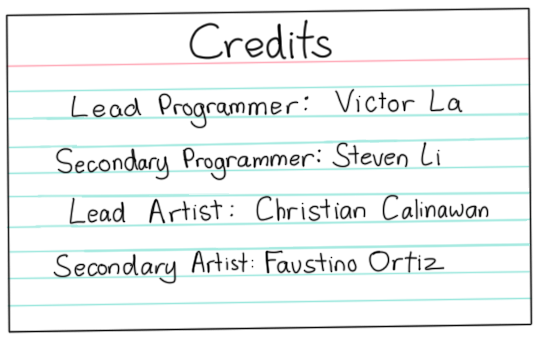 Credits
Lead Programmer: Victor La
Secondary Programmer: Steven Li
Lead Artist: Christian Calinawan
Secondary Artist: Faustino Ortiz